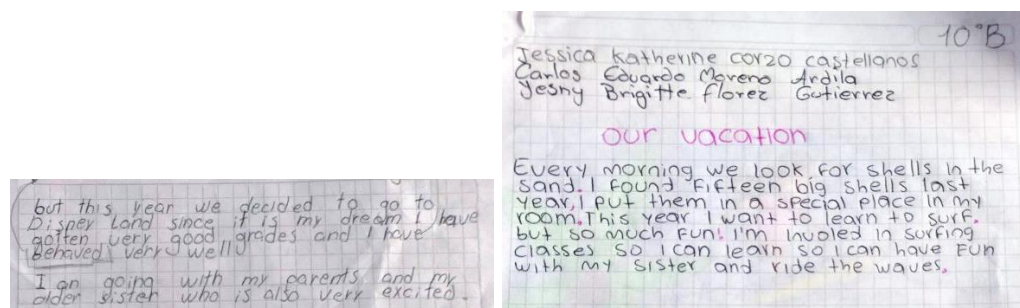 but this year we decided to go to
Disney Land since it is my dream I have
gotten very good grades and I have
behaved very well
I an going with my parents and my
older sister who is also very excited.
10°B
Jessica Katherine corzo castellanos
Carlos Eduardo Moreno Ardila
Yesny Brigitte florez Gutierrez
our vacation
Every morning we look for shells in the
sand. I found fifteen big shells last
year, I put them in a special place in my
room. This year I want to learn to surf.
but so much fun! I'm involed in surfing
classes so I can learn so I can have fun
with my sister and ride the waves.